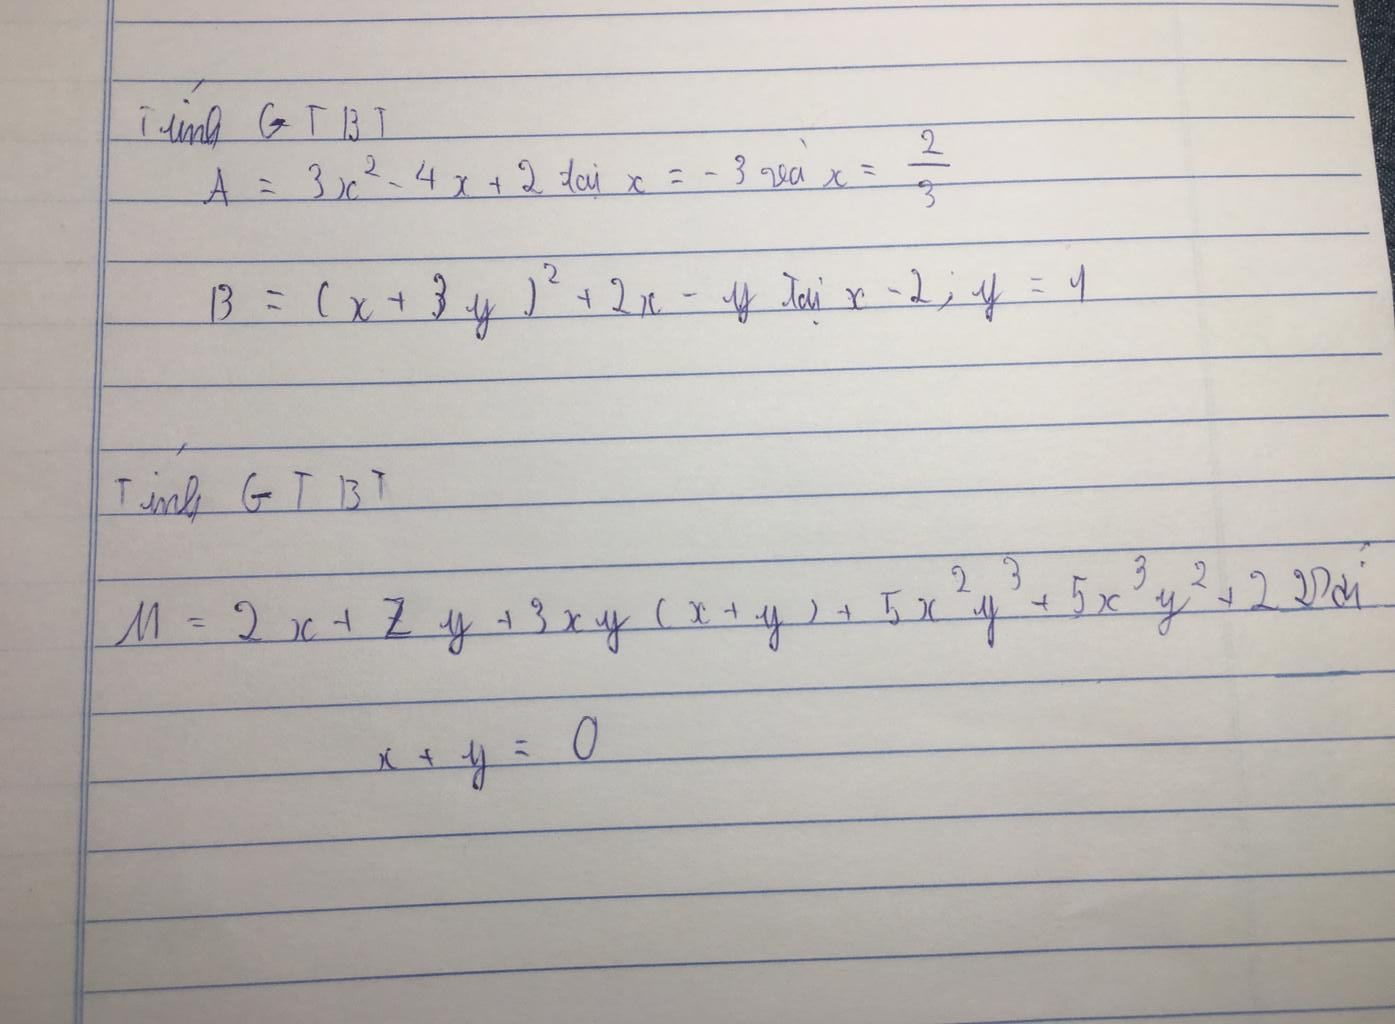 Tính GTBT
A = 3x² - 4x + 2 tại x = -3 và x = 2/3
B = (x + 3y)² + 2x - y Tại x - 2; y = 1
Tính GTBT
M = 2x + 2y + 3xy (x + y) + 5x²y³ + 5x³y² + 2 Với
x + y = 0